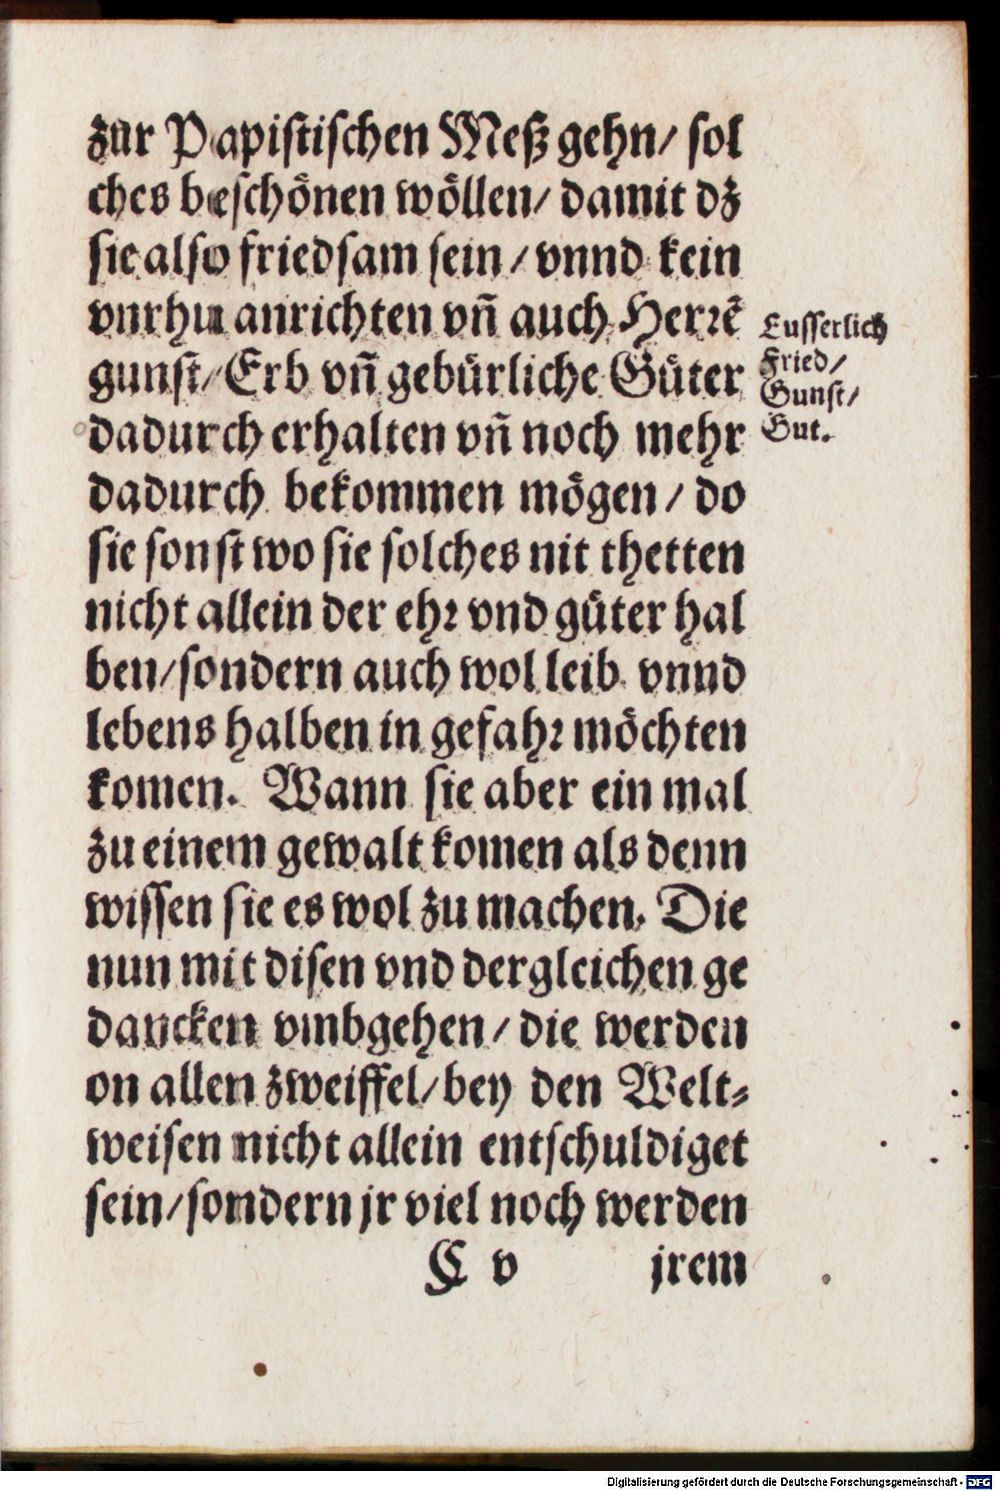 zur Papistischen Meß gehn/ sol
ches beschönen wöllen/ damit dz
sie also friedsam sein/ vnnd kein
vnrhu anrichten vñ auch Herrẽ
gunst/ Erb vñ gebürliche Güter
dadurch erhalten vñ noch mehr
dadurch bekommen mögen/ do
sie sonst wo sie solches nit thetten
nicht allein der ehr vnd güter hal
ben/ sondern auch wol leib vnnd
lebens halben in gefahr möchten
komen. Wann sie aber ein mal
zu einem gewalt komen als denn
wissen sie es wol zu machen. Die
nun mit disen vnd dergleichen ge
dancken vmbgehen/ die werden
on allen zweiffel/ bey den Welt⸗
weisen nicht allein entschuldiget
sein/ sondern jr viel noch werden
C v jrem
Eusserlich
Fried/
Gunst/
Gut.
Digitalisierung gefördert durch die Deutsche Forschungsgemeinschaft - DFG